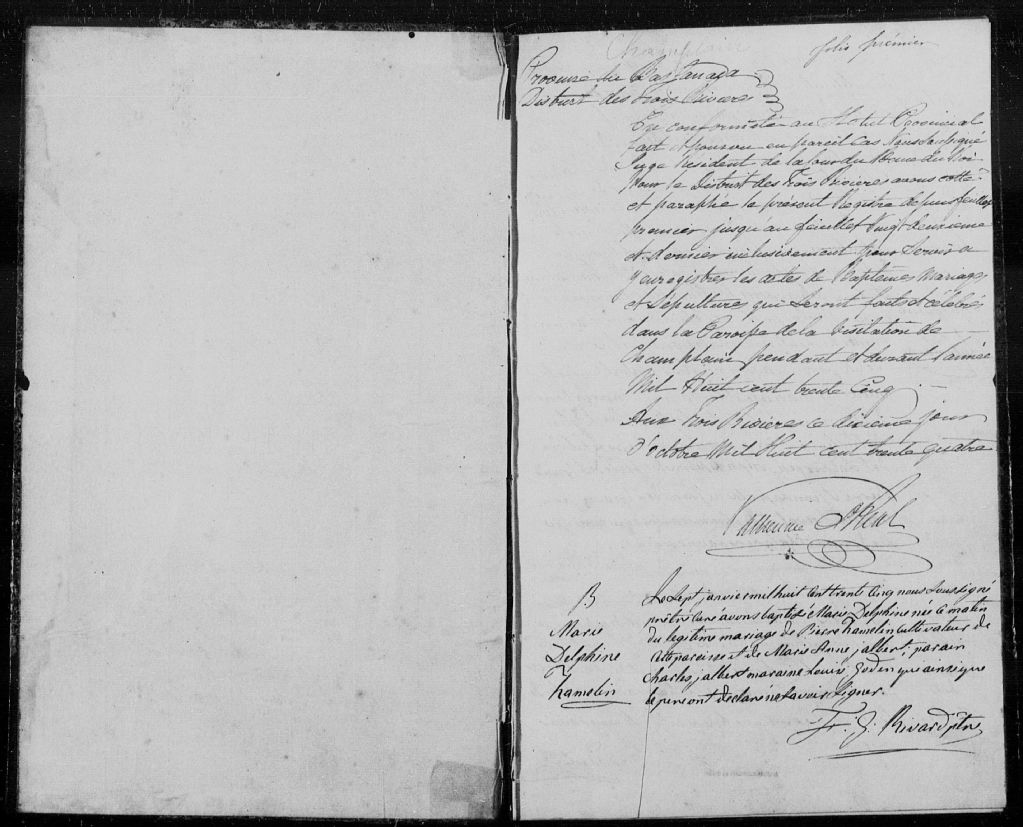 Champlain
folio prémier
Province du Bas Canada
District des Trois Rivieres
En conformité au Statut Provincial
fait et pourvu en pareil Cas Nous Soussigné
Juge Resident de la Cour du Banc du Roi
Pour le District des Trois Rivieres avons cotté
et paraphé le présent Registre depuis feuillet
premier jusqu'au feuillet Vingt deuxieme
et dernier inclusivement pour Servir a
y enregistrer les actes de Baptemes Mariages
et Sépultures qui Seront faits et célébrés
dans la Paroisse de la Visitation de
Champlain pendant et durant l'année
Mil Huit cent trente Cinq
Aux Trois Rivieres ce dixieme jour
d'octobre Mil Huit cent trente quatre
B
Marie
Delphine
hamelin
Le Sept janvier mil huit Cent trente Cinq nous Sous Signé
prêtre Curé avons baptisé Marie Delphine née Ce matin
du legitime mariage de Pierre hamelin Cultivateur de
cette paroisse et de Marie Anne jalbert; parain
charles jalbert maraine Louise Godin qui ainsi que
le pere ont declaré ne savoir Signer.
F. G. Rivard ptre